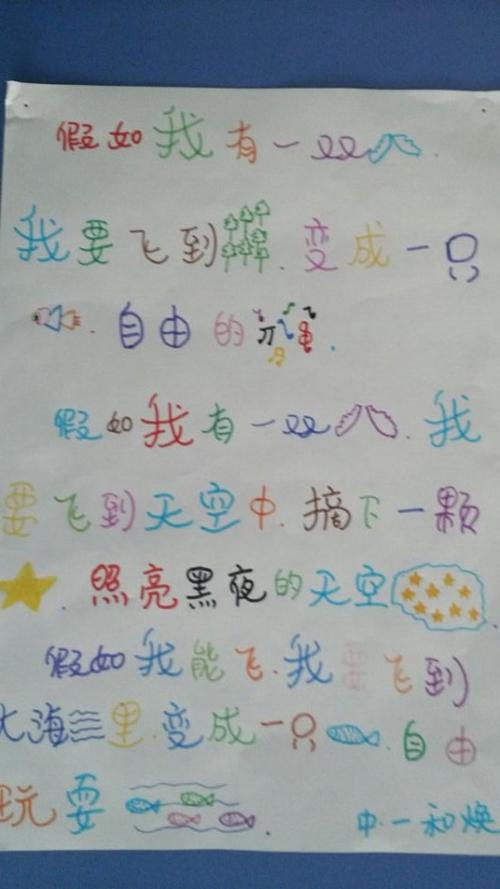 假如我有一双
我要飞到 变成一只
自由的
假如我有一双 我
要飞到天空中 摘下一颗
照亮黑夜的天空
假如我能飞 我要飞到
大海里 变成一只 自由
玩耍 中一和焕